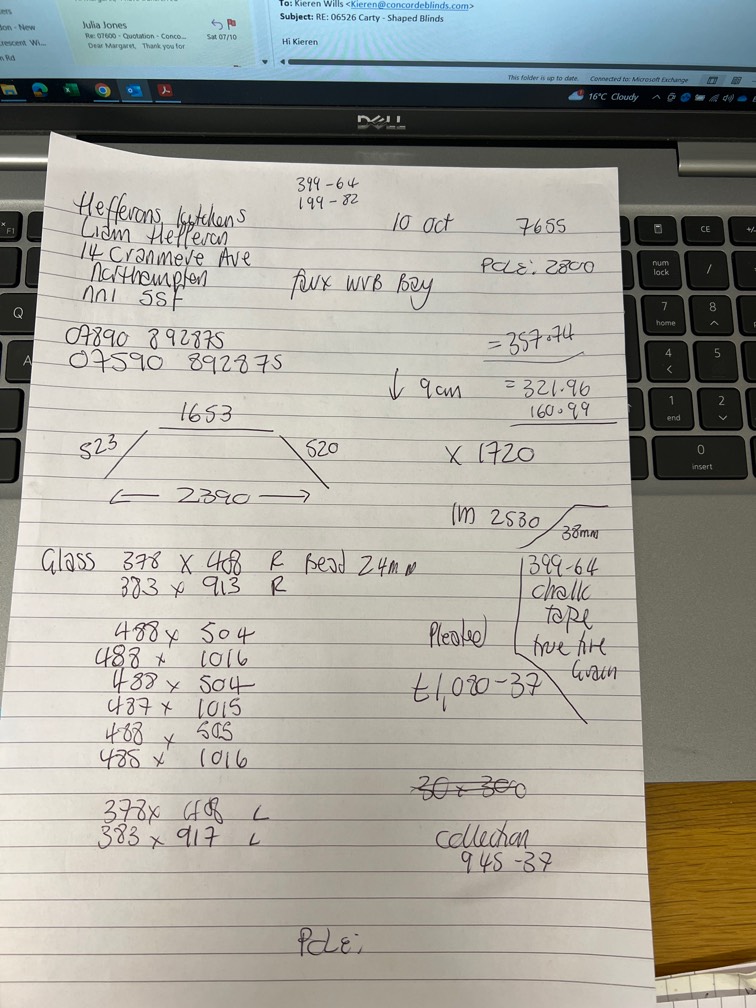 Julia Jones
Re: 07600 - Quotation - Conco...
Sat 07/10
Dear Margaret, Thank you for
To: Kieren Wills <Kieren@concordeblinds.com>
Subject: RE: 06526 Carty - Shaped Blinds
Hi Kieren
This folder is up to date. Connected to: Microsoft Exchange
16°C Cloudy
DELL
399-64
199-82
Hefferons kutchens
Liam Hefferon
14 Cranmere Ave
Northampton
nn1 5SF
10 Oct 7655
PCLE: 2800
faux WVB Bay
07890 892875
07590 892875
= 357.74
↓ 9cm = 321.96
160.99
1653
523 520
x 1720
2390
1m 2530 38mm
Glass 378 x 408 R Bead 24mm
383 x 913 R
399-64
chalk
tape
true fire
Grain
488 x 504
488 x 1016
488 x 504
487 x 1015
488 x 505
485 x 1016
Pleated
£1,080-37
30 x 300
378 x 408 L
383 x 917 L
Collection
945-37
PCLE:
F1
Q
A
CE
+/-
num
lock
/
7
home
8
4
5
1
end
2
0
insert